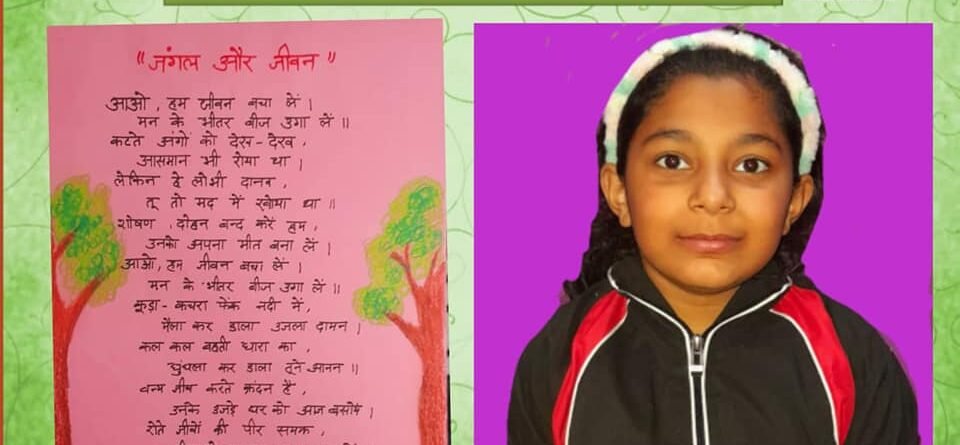 "जंगल और जीवन"
आओ, हम जीवन बचा लें।
मन के भीतर बीज उगा लें॥
कटते अंगों को देख-देख,
आसमान भी रोया था।
लेकिन हे लोभी दानव,
तू तो मद में खोया था॥
शोषण, दोहन बन्द करें हम,
उनको अपना मीत बना लें।
आओ, हम जीवन बचा लें।
मन के भीतर बीज उगा लें॥
कूड़ा-कचरा फेंक नदी में,
मैला कर डाला उजला दामन।
कल कल बहती धारा का,
धुंधला कर डाला तूने आनन॥
वन्य जीव करते क्रंदन हैं,
उनके उजड़े घर को आज बसायें।
रोते जीवों की पीर समझ,